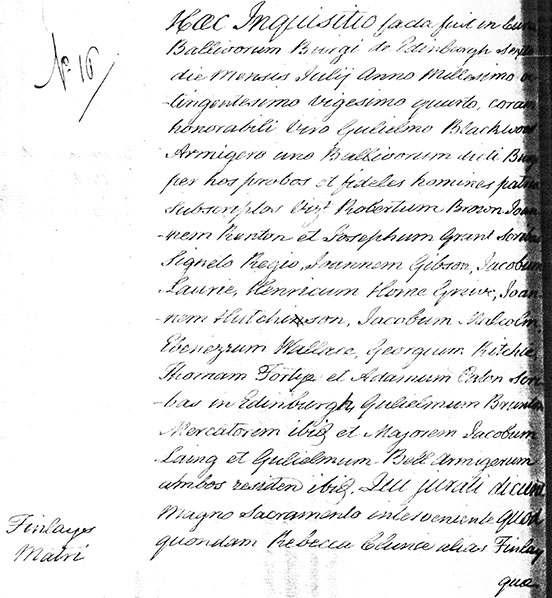 No. 16
Hæc Inquisitio facta fuit in Curia
Ballivorum Burgi de Edinburgh sexto
die Mensis Julij Anno Millesimo oc
-tingentesimo vigesimo quarto, coram
honorabili Viro Gulielmo Blackwood
Armigero uno Ballivorum dicti Burgi
per hos probos et fideles homines patriæ
subscriptos vizt. Robertum Brown Joan
-nem Renton et Josephum Grant Scribas
Signeto Regio, Joannem Gibson, Jacobum
Laurie, Henricum Home Joan
-nem Hutchinson, Jacobum Malcolm,
Ebenezrum Wallace, Georgium Ritchie,
Thomam et Adamum Scri
-bas in Edinburgh, Gulielmum Brunton
Mercatorem ibid et Majorem Jacobum
Laing et Gulielmum Bell Armigerum
ambos residen ibid. Qui jurati dicunt
Magno Sacramento interveniente Quod
quondam Rebecca Clunie alias Finlay
quæ
Finlays
Matri